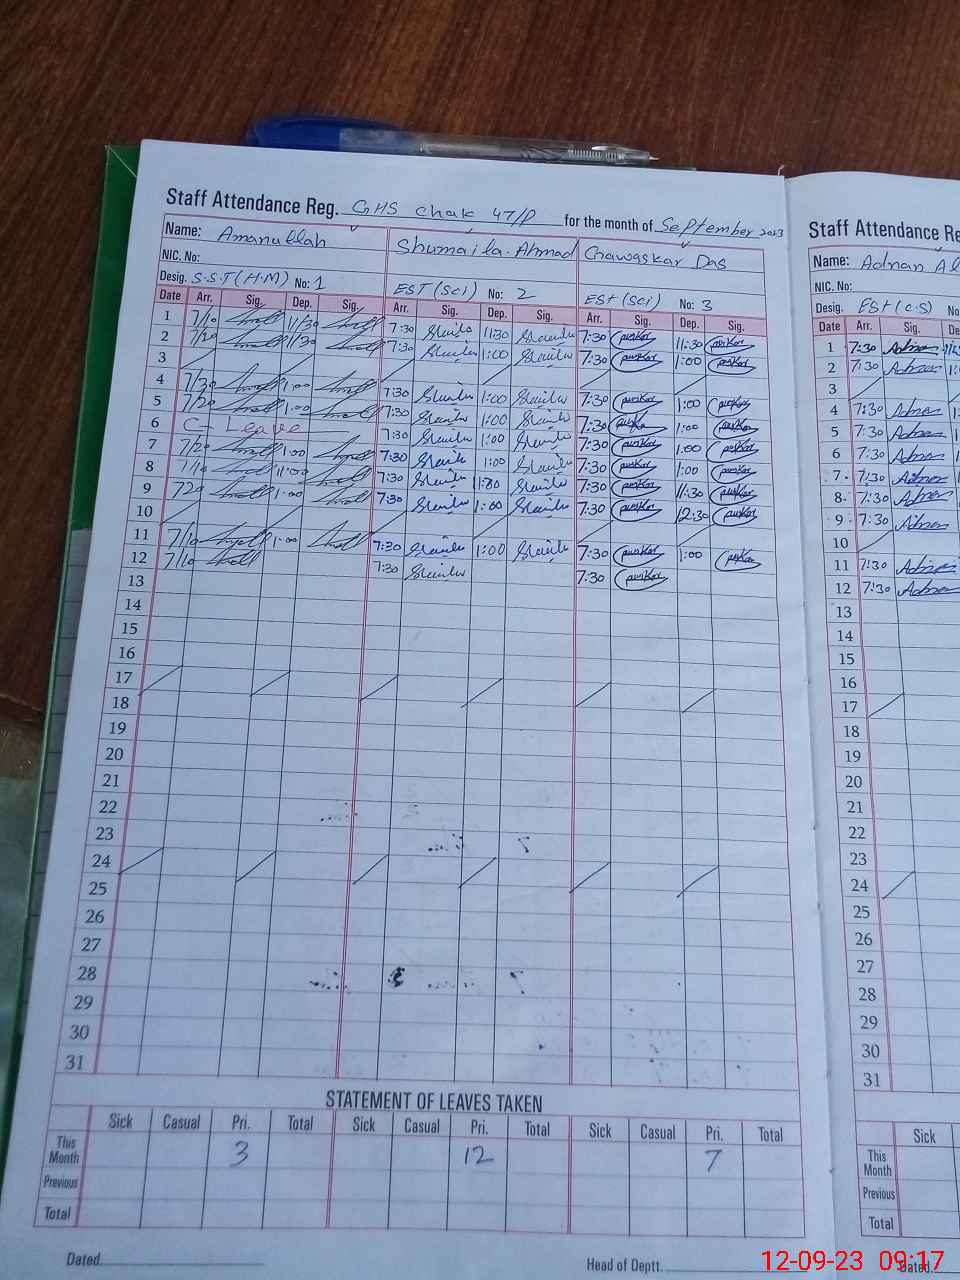 Staff Attendance Reg. GHS Chak 47/P for the month of September 2023
Name: Amanullah Shumaila Ahmad Chawaskar Das
NIC. No:
Desig. S.S.T (H.M) No: 1 EST (Sci) No: 2 ESt (sci) No: 3
Date Arr. Sig. Dep. Sig. Arr. Sig. Dep. Sig. Arr. Sig. Dep. Sig.
1 7/10 11/30 7:30 11:30 7:30 11:30
2 7/20 11/30 7:30 1:00 7:30 1:00
3
4 7/30 1:00 7:30 1:00 7:30 1:00
5 7/20 1:00 7:30 1:00 7:30 1:00
6 C- Leave 7:30 1:00 7:30 1:00
7 7/20 1:00 7:30 1:00 7:30 1:00
8 7/10 11:00 7:30 11:30 7:30 11:30
9 720 1:00 7:30 1:00 7:30 12:30
10
11 7/10 1:00 7:30 1:00 7:30 1:00
12 7/10 7:30 7:30
13
14
15
16
17
18
19
20
21
22
23
24
25
26
27
28
29
30
31
STATEMENT OF LEAVES TAKEN
Sick Casual Pri. Total Sick Casual Pri. Total Sick Casual Pri. Total
This Month 3 12 7
Previous
Total
Dated. Head of Deptt.
Staff Attendance Re
Name: Adnan Al
NIC. No:
Desig. ESt (C.S) No
Date Arr. Sig. De
1 7:30 Adnan
2 7:30 Adnan
3
4 7:30 Adnan
5 7:30 Adnan
6 7:30 Adnan
7 7:30 Adnan
8 7:30 Adnan
9 7:30 Adnan
10
11 7:30 Adnan
12 7:30 Adnan
13
14
15
16
17
18
19
20
21
22
23
24
25
26
27
28
29
30
31
Sick
This Month
Previous
Total
Dated.
12-09-23 09:17